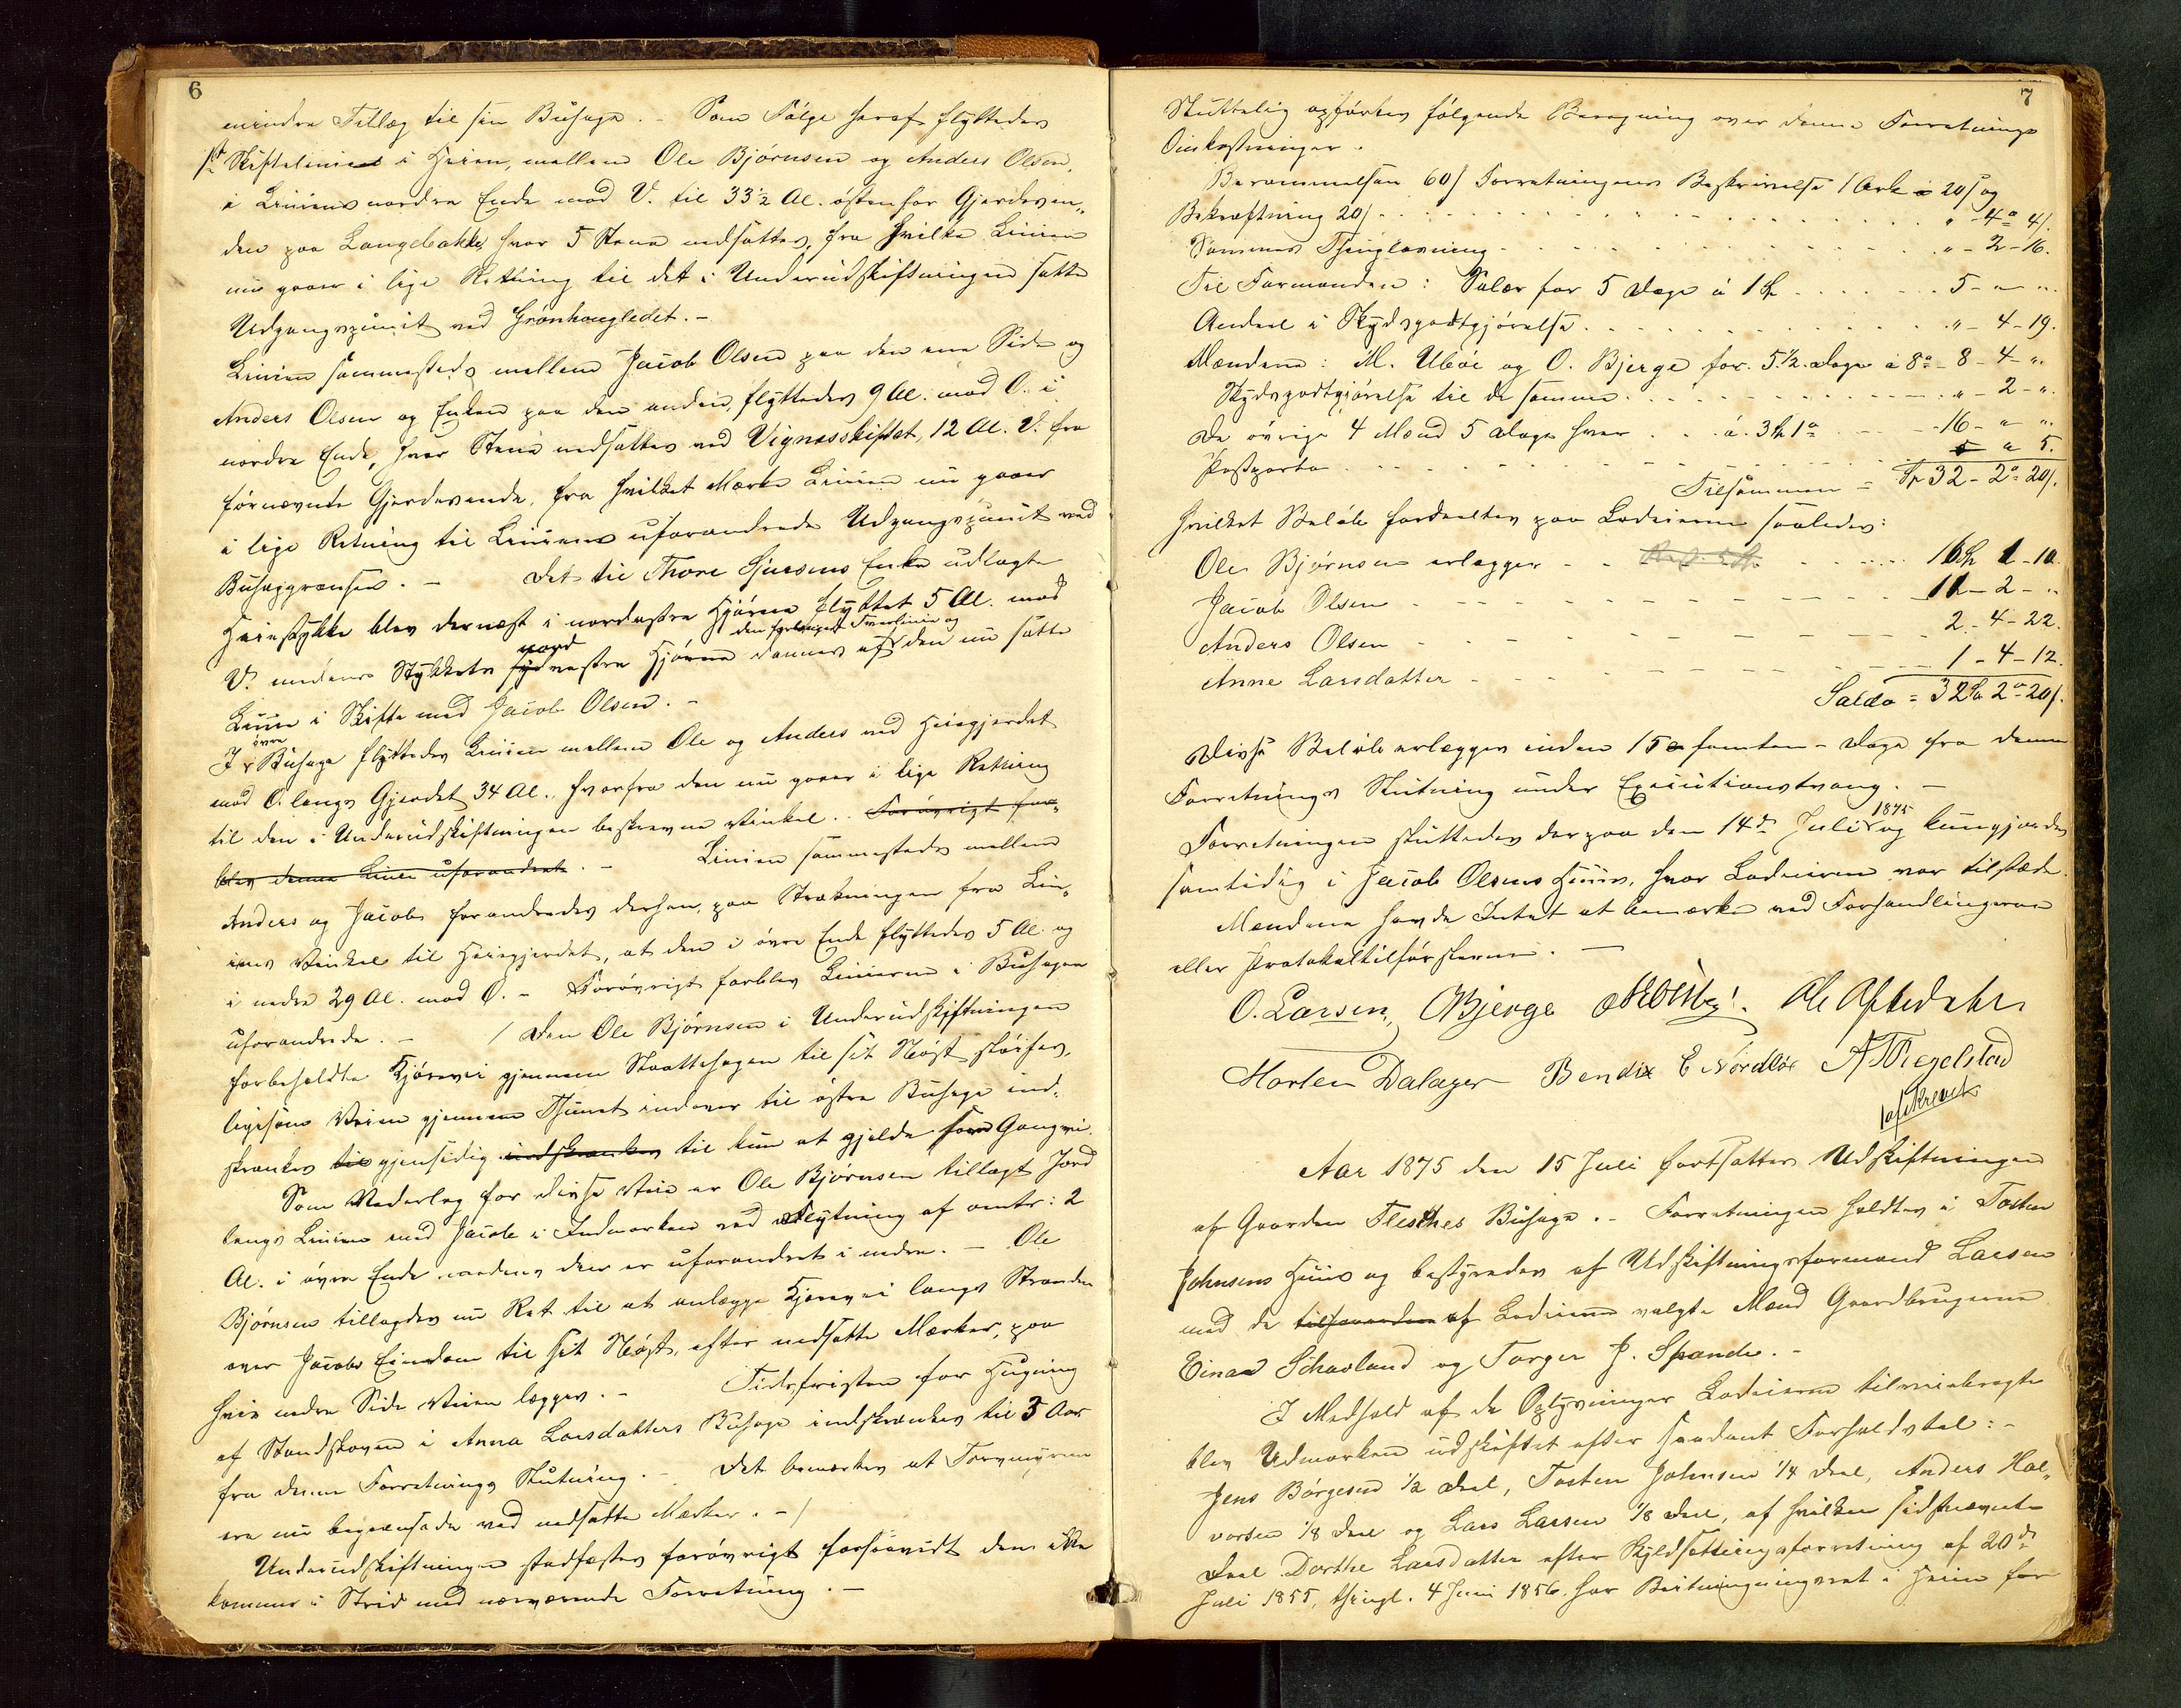 6
mindre Tillæg til sin Buhage. – Som Følge heraf flyttedes
1st Skiftelinien i Heien, mellem Ole Bjørnsen og Anders Olsen,
i Liniens nordre Ende mod V. til 33½ Al. østenfor Gjerdesven„
den paa Langebakke, hvor 5 Stene nedsattes, fra hvilke Linien
nu gaaer i lige Retning til det i Underudskiftningen satte
Udgangspunct ved Grønhougledet. –
Linien sammesteds mellem Jacob Olsen paa den ene Side og
Anders Olsen og Enken paa den anden, flyttedes 9 Al. mod O. i
nordre Ende, hvor Stene nedsattes ved Vignesskiftet, 12 Al. V. fra
førnævnte Gjerdesvende, fra hvilket Mærke Linien nu gaaer
i lige Retning til Liniens uforandrede Udgangspunct ved
Buhaggrænsen. – Det til Thore Sjursens Enke udlagte
Heiestykke blev dernæst i nordøstre Hjørne flyttet 5 Al. mod
den forlængede Tverlinie og
V. medens Stykkets syd nord vestre Hjørne dannes af den nu satte
Linie i Skifte med Jacob Olsen. –
I øvre Buhage flyttedes Linien mellem Ole og Anders ved Heiegjerdet
mod O. langs Gjerdet 34 Al., hvorfra den nu gaaer i lige Retning
til den i Underudskiftningen beskrevne Vinkel. Forøvrigt for„
blev denne Linie uforandret. – Linien sammesteds mellem
Anders og Jacob forandredes derhen, paa Strækningen fra Lin„
iens Vinkel til Heiegjerdet, at den i øvre Ende flyttedes 5 Al. og
i nedre 29 Al. mod Ø. – Forøvrigt forblev Linierne i Buhagen
uforandrede. – / Den Ole Bjørnsen i Underudskiftningen
forbeholdte Kjørevei gjennem Staattehagen til sit Nøst sløifes,
ligesom Veien gjennem Thunet indover til østre Buhage ind„
skrænkes til gjensidig indskrænkes til kun at gjelde som Gangvei.
Som Vederlag for disse Veie er Ole Bjørnsen tillagt Jord
langs Linien med Jacob i Indmarken ved Flytning af omtr: 2
Al. i øvre Ende medens den er uforandret i nedre. – Ole
Bjørnsen tillagdes nu Ret til at anlægge Kjørevei langs Stranden
over Jacobs Eiendom til sit Nøst, efter nedsatte Mærker, paa
hvis nedre Side Veien lægges. – Tidsfristen for Hugning
af Standskoven i Anna Larsdatters Buhage indskrænkes til 3 Aar
fra denne Forretnings Slutning. – Det bemærkes at Torvmyrene
ere nu begrændsede ved nedsatte Mærker. – /
Underudskiftningen stadfæstes forøvrigt forsaavidt den ikke
kommer i Strid med nærværende Forretning. –
7
Sluttelig opførtes følgende Beregning over denne Forretnings
Omkostninger.
Berammelsen 60 s Forretningens Beskrivelse 1 Ark à 20 s og
Bekræftning 20 s . . . . . . . . . . „ - 4 o 4 s.
Sammes Thinglæsning . . . . . . . . . . „ - 2 - 16.
Til Formanden: Salær for 5 Dage à 1 Sp . . . . . . 5 - „ - „.
Andeel i Skydsgodtgjørelse . . . . . . . . . . „ - 4 - 19.
Mændene: M. Ubøe og O. Bjerge for 5½ Dage à 8 o - 8 - 4 - „.
Skydsgodtgjørelse til de samme . . . . . . . . „ - 2 - „.
De øvrige 4 Mænd 5 Dage hver . . à 3 1 o . . . 16 - „ - „.
Postporto . . . . . . . . . . „ 5.
Tilsammen = Sp 32 - 2 o 20 s.
hvilket Beløb fordeeltes paa Lodeierne saaledes:
Ole Bjørnsen erlægger - - . . . . . 16 Sp 1 - 10.
Jacob Olsen - - - - - - - - - 11 - 2 - „
Anders Olsen - - - - - - - - - 2 - 4 - 22.
Anne Larsdatter - - - - - - - - 1 - 4 - 12.
Saldo = 32 Sp 2 o 20 s.
Disse Beløb erlægges inden 15 femten - Dage fra denne
Forretnings Slutning under Executionstvang. –
Forretningen sluttedes derpaa den 14de Juli 1875 og kundgjordes
samtidig i Jacob Olsens Huus, hvor Lodeierne var tilstæde.
Mændene havde Intet at bemærke ved Forhandlingerne
eller Protokoltilførslerne. –
O. Larsen, OBjerge Ole Aftedahl
Morten Dalager Bendix E Nordbøe A. Tegelstad
Afskrevet
Aar 1875 den 15 Juli fortsattes Udskiftningen
af Gaarden Flesches Buhage. – Forretningen holdtes i Tosten
Johnsens Huus og bestyredes af Udskiftningsformand Larsen
med de tilforordnede af Lodeierne valgte Mænd Gaardbrugerne
Einar Schavland og Torger J. Spande. –
I Medhold af de Oplysninger Lodeierne tilveiebragte
blev Udmarken udskiftet efter saadant Forholdstal: –
Jens Børgesen 1/2 Deel, Tosten Johnsen 1/4 Deel, Anders Hal„
vorsen 1/8 Deel og Lars Larsen 1/8 Deel, af hvilken sidstnævnte
Deel Dorthe Larsdatter efter Skyldsætningsforretning af 20de
Juli 1855, thingl. 4 Juni 1856, har Beitningsret i Heien for